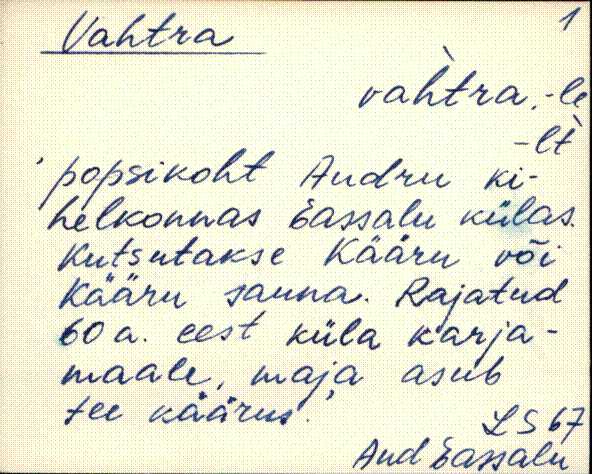 Vahtra 1
vah̀tra, -le
-lt̀
'popsikoht Audru ki-
helkonnas Eassalu külas.
Kutsutakse Kääru või
Kääru sauna. Rajatud
60 a. eest küla karja-
maale, maja asub
tee käärus.'
LS 67
Aud Eassalu